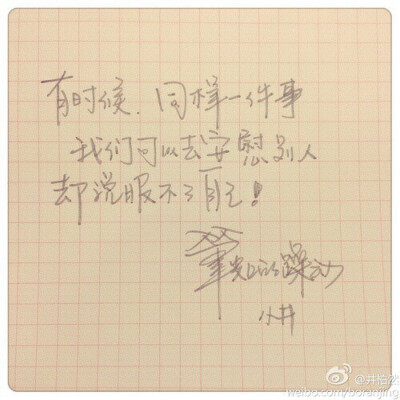 有时候.同样一件事
我们可以去安慰别人
却说服不了自己!
的躁动
小井
@井柏然
weibo.com/boranjing